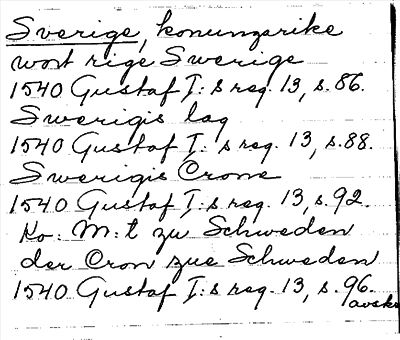 Sverige, konungarike
wort rige Swerige
1540 Gustaf I:s reg. 13, s.86.
Swerigis lag
1540 Gustaf I:s reg. 13, s.88.
Swerigis Crone
1540 Gustaf I:s reg. 13, s.92.
Ko: M:t zu Schweden
der Cron zue Schweden
1540 Gustaf I:s reg. 13, s.96.
avskr